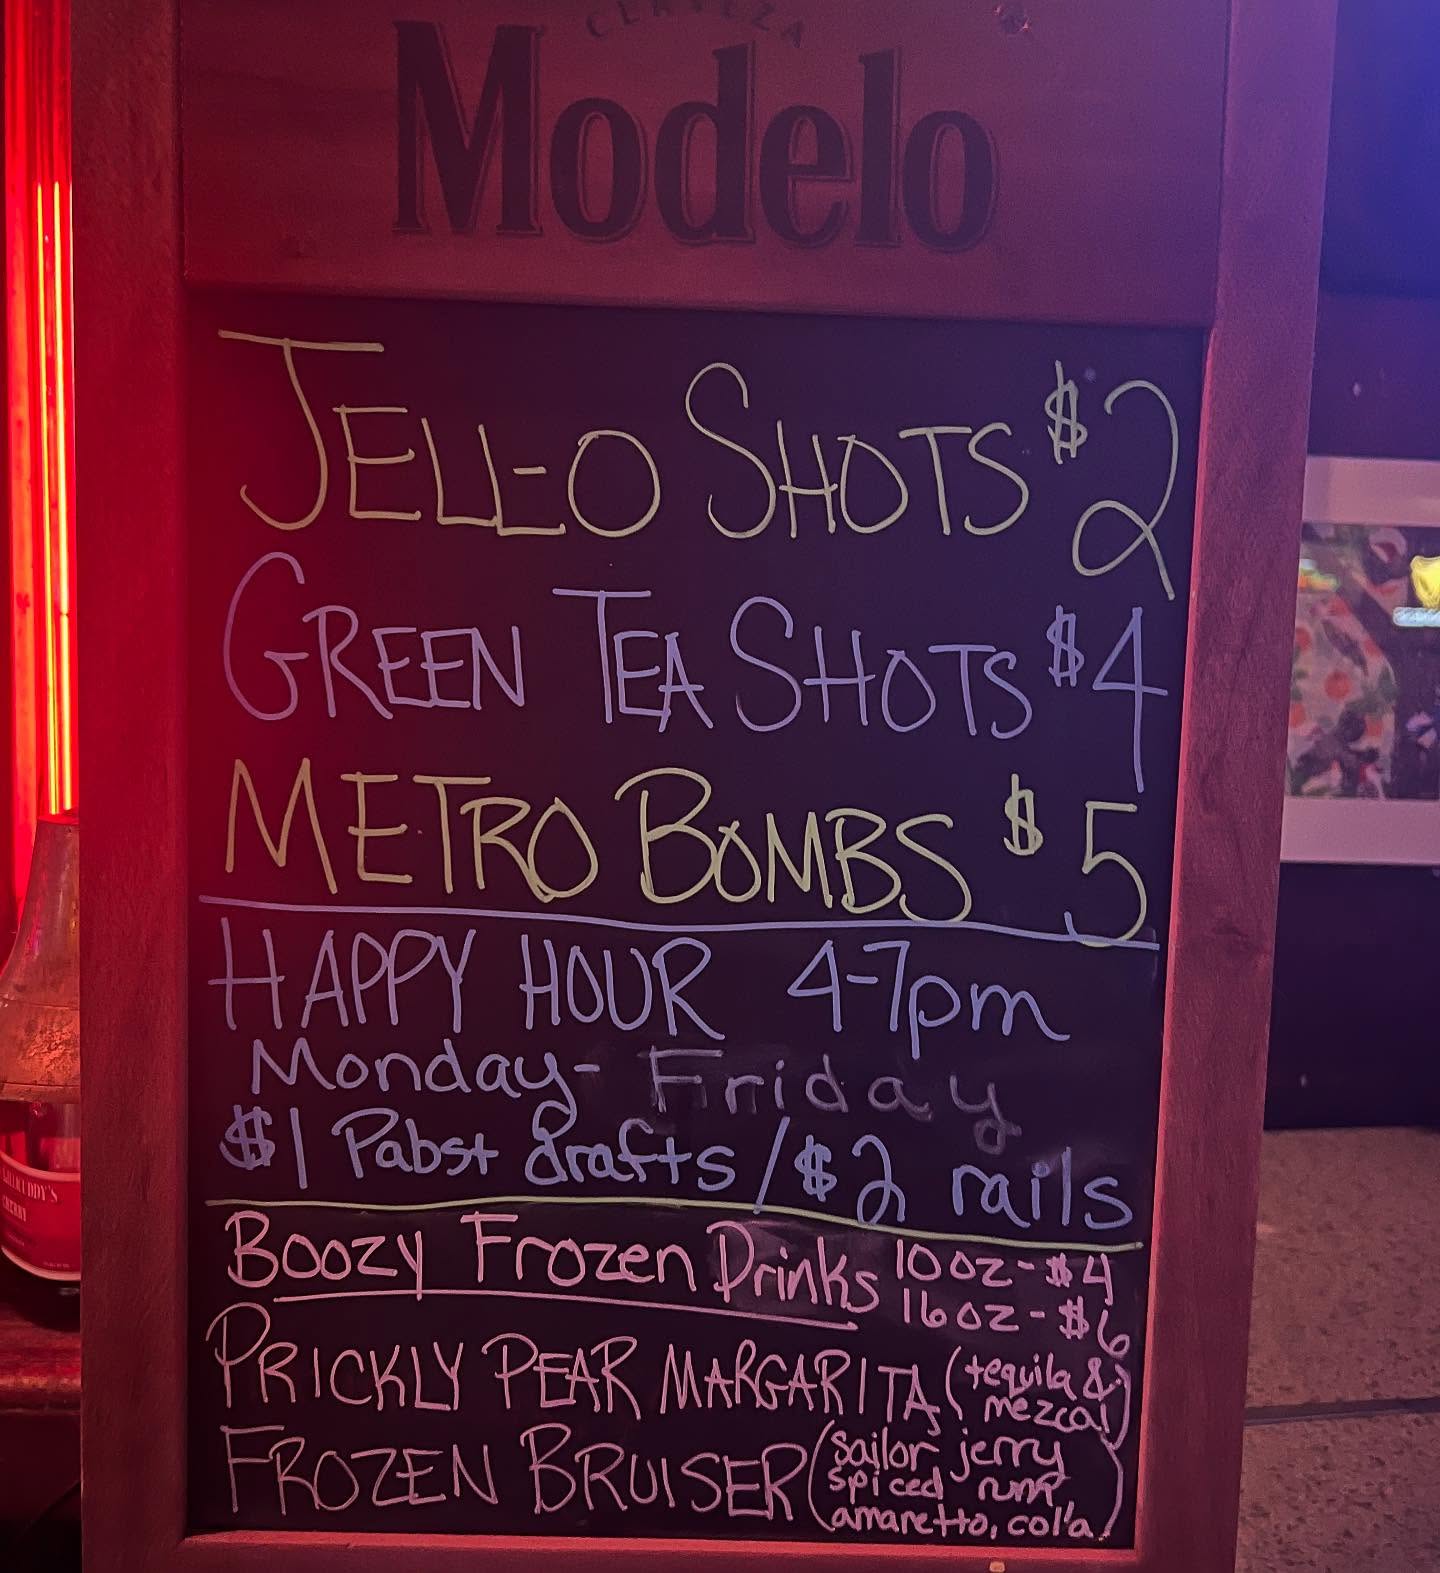 CERVEZA
Modelo
JELL-O SHOTS $2
GREEN TEA SHOTS $4
METRO BOMBS $5
HAPPY HOUR 4-7pm
Monday- Friday
$1 Pabst drafts / $2 rails
Boozy Frozen Drinks 10oz-$4
16oz-$6
PRICKLY PEAR MARGARITA (tequila &
mezcal)
FROZEN BRUISER (sailor jerry
spiced rum
amaretto, cola)